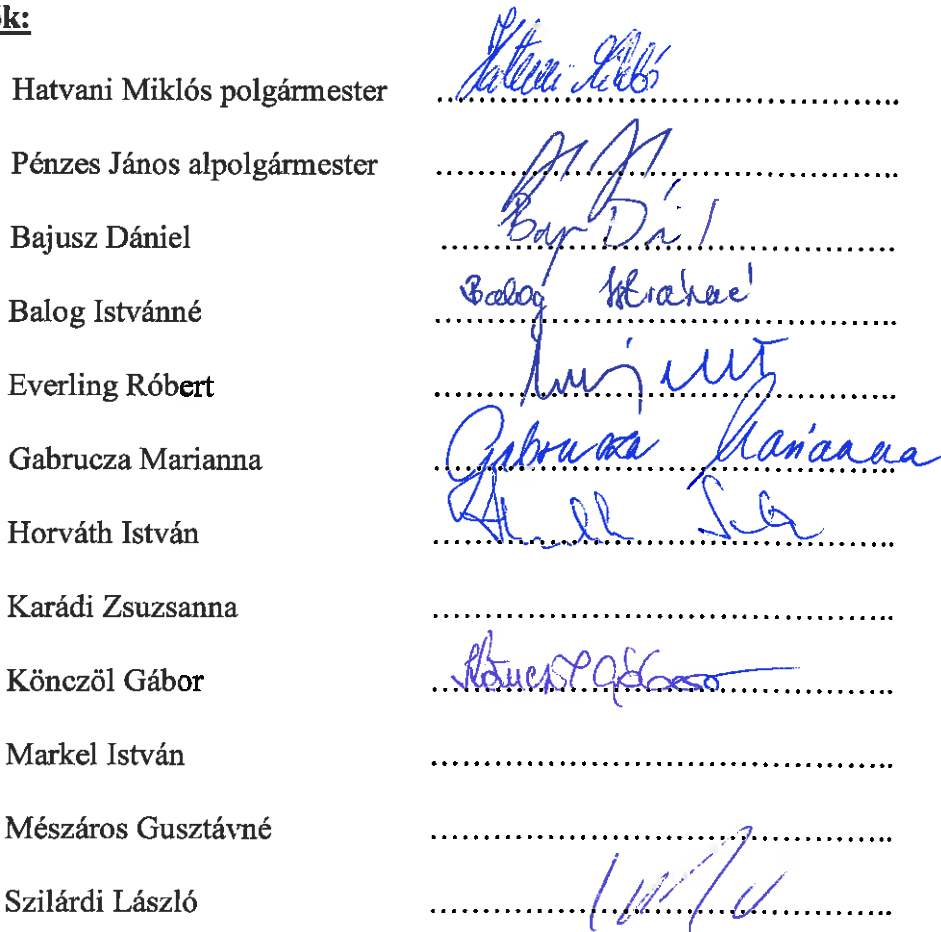 ők:
Hatvani Miklós polgármester Hatvani Miklós
Pénzes János alpolgármester
Bajusz Dániel
Balog Istvánné Balog Istvánné
Everling Róbert
Gabrucza Marianna Gabrucza Marianna
Horváth István
Karádi Zsuzsanna
Könczöl Gábor Könczöl Gábor
Markel István
Mészáros Gusztávné
Szilárdi László